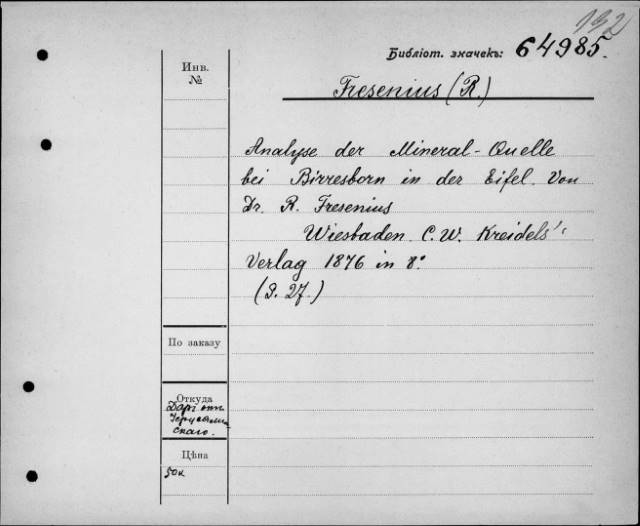 132
Библіот. значекъ: 64985.
Инв.
№
Fresenius (R.)
Analyse der Mineral-Quelle
bei Birresborn in der Eifel. Von
Dr. R. Fresenius
Wiesbaden. C. W. Kreidels'
Verlag 1876 in 8°
(S. 27.)
По заказу
Откуда
Даръ отъ
скаго.
Цѣна
50к